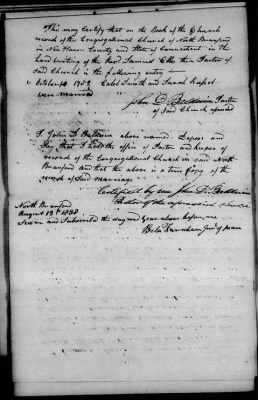 This may Certify that on the Book of the Church
record of the Congregational Church of North Branford
in New Haven County and State of Connecticut in the
hand writing of the Revd Samuel Eells then Pastor of
said Church is the following entry
October 14 178 Caleb Smith and Sarah
were married
John D. Baldwin Pastor
of said Church aforesaid
I John D Baldwin above named Depose and
Say that I hold the office of Pastor and keeper of
records of the Congregational Church in said North
Branford and that the above is a true Copy of the
record of said marriage
Certified by me John D. Baldwin
Pastor of the aforesaid Church
North Branford
August 13th 1838
Sworn and Subscribed the day and year above before me
Bela Farnham Jus of peace